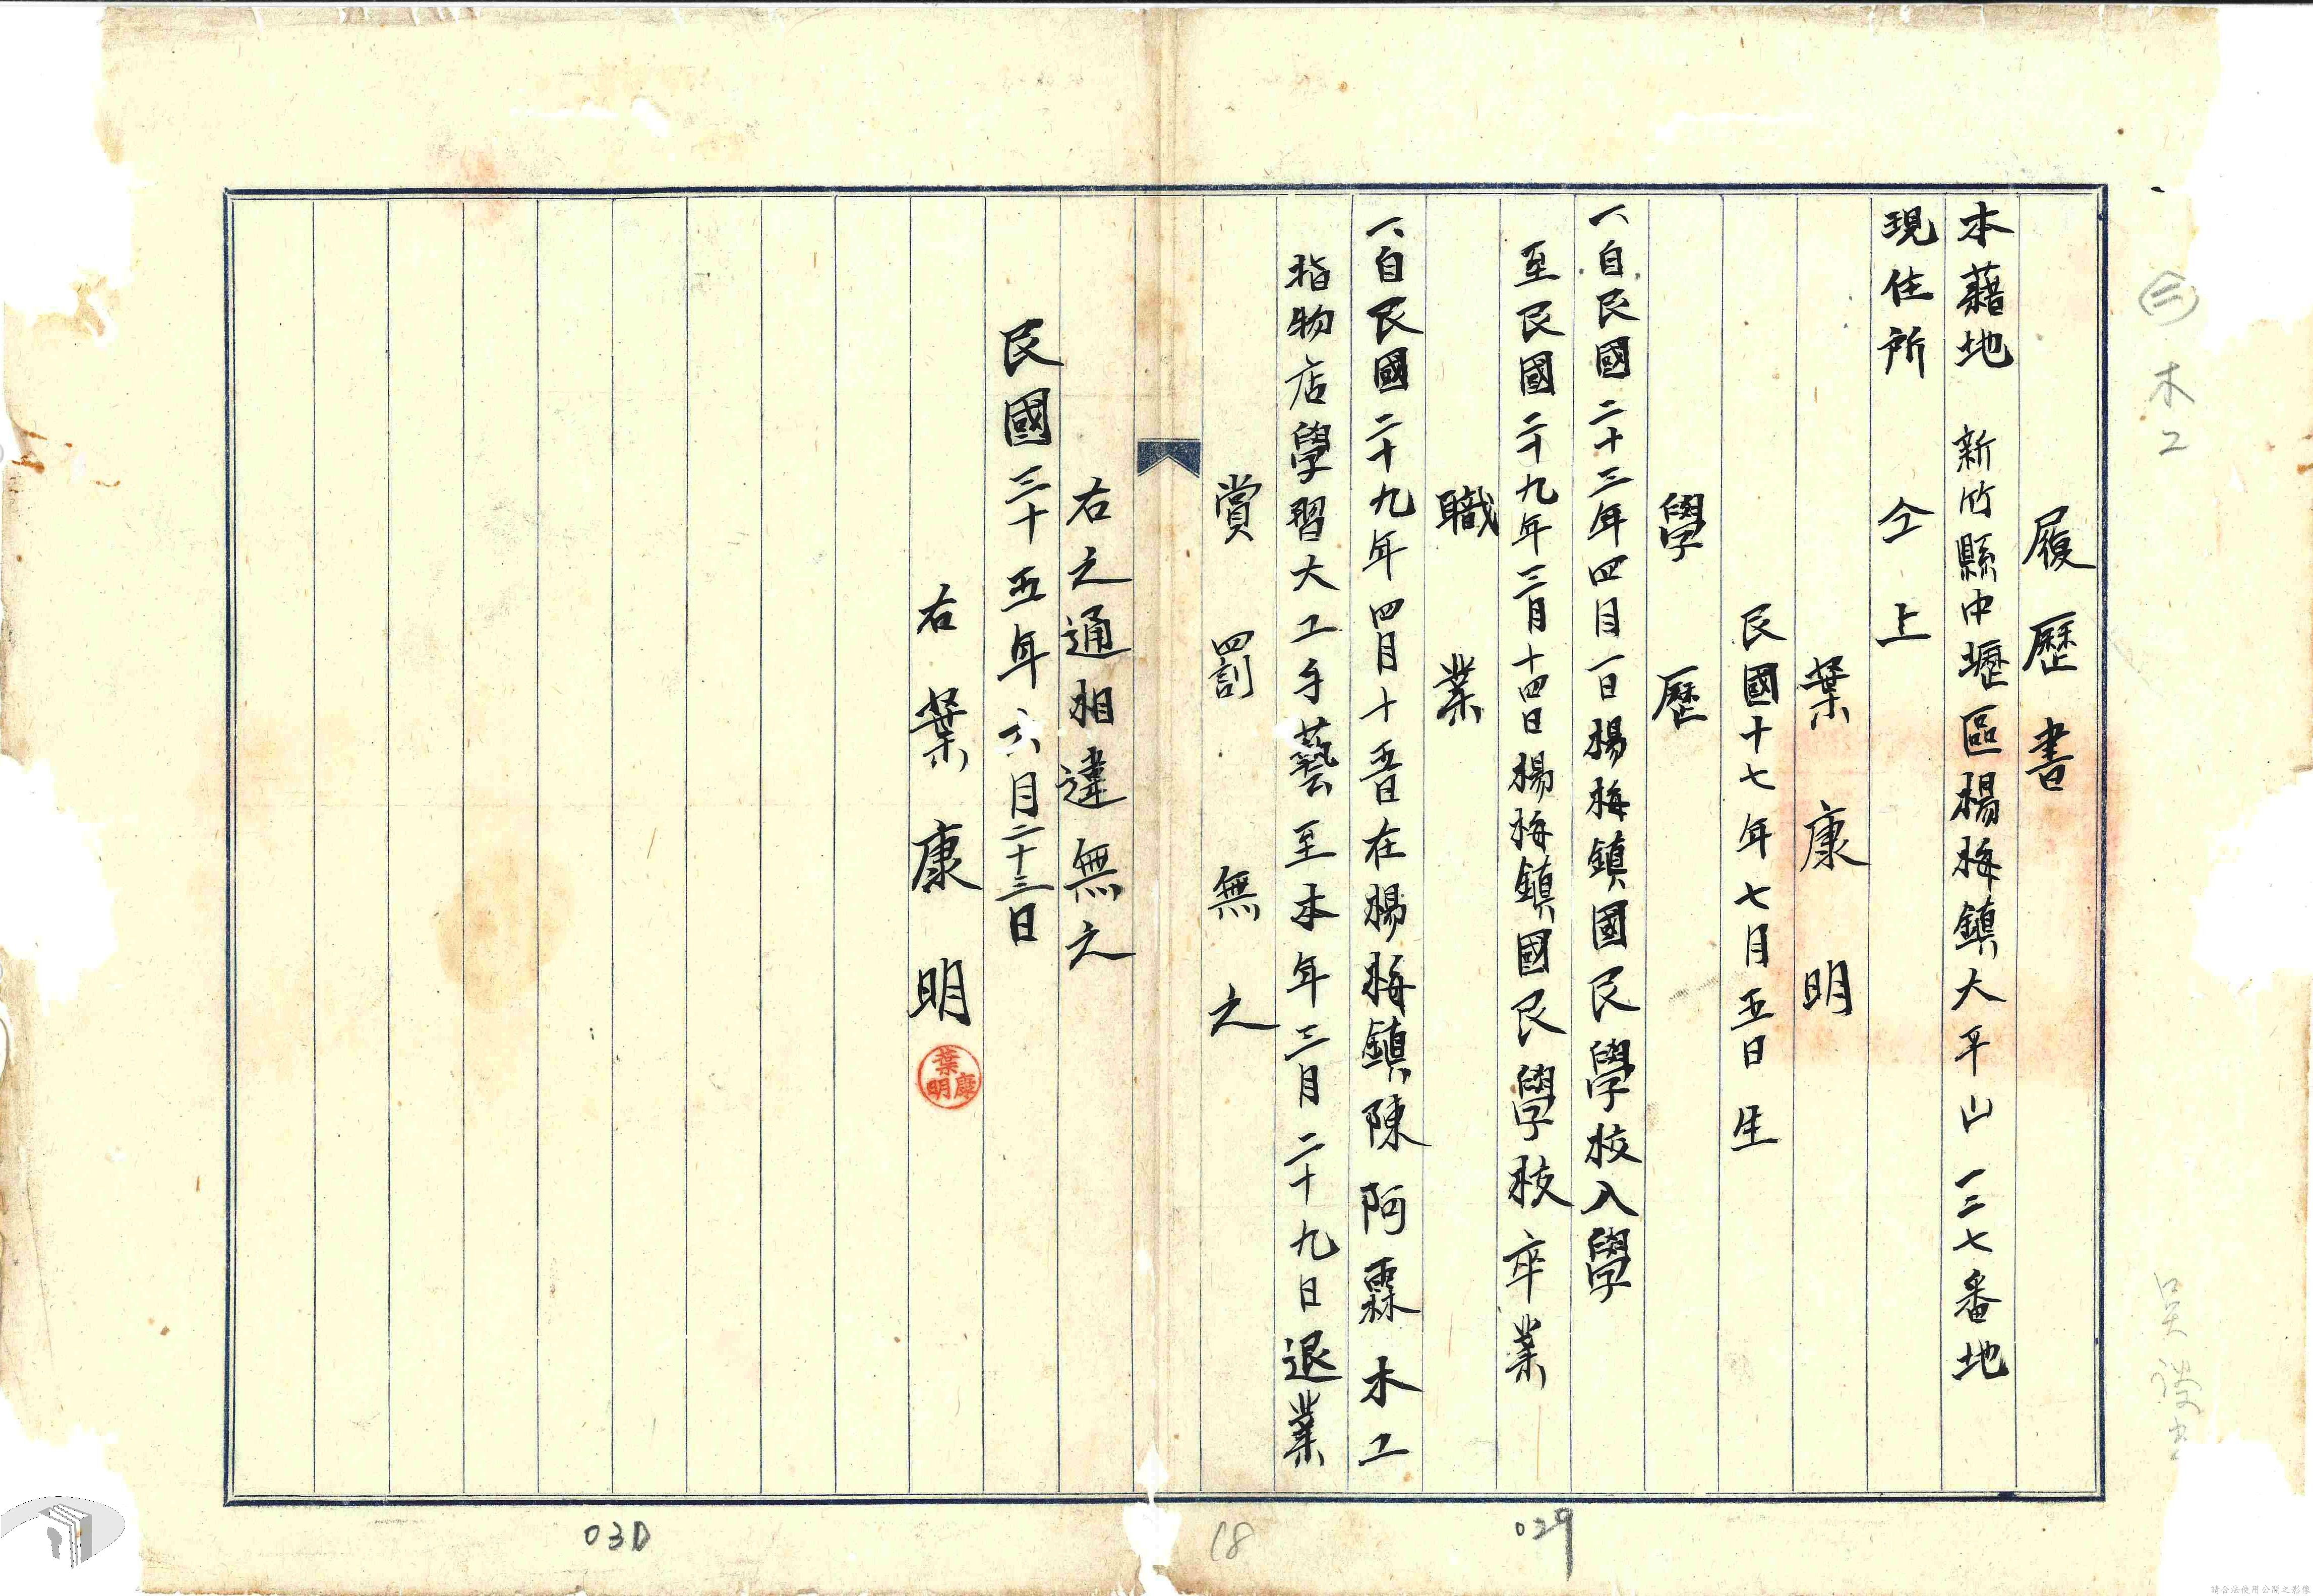 履歷書
本藉地 新竹縣中壢區楊梅鎮大平山一二七番地
現住所 仝上
葉康明
民國十七年七月五日生
學歷
一、自民國二十三年四月一日楊梅鎮國民學校入學
至民國二十九年三月十四日楊梅鎮國民學校卒業
職業
一、自民國二十九年四月十五日在楊梅鎮陳阿霖木工
指物店學習大工手藝至本年三月二十九日退業
賞罰 無之
右之通相違無之
民國三十五年六月二十三日
右 葉康明
葉康明
㊁木2
029
18
030